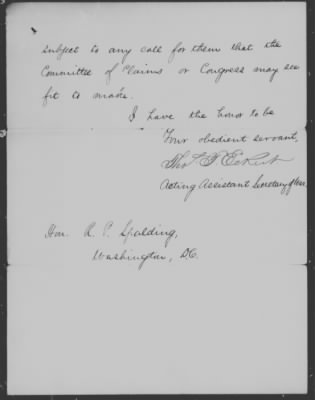 subject to any call for them that the
Committee of Claims or Congress may see
fit to make.
I have the honor to be
Your obedient servant,
Thos. T. Eckert
Acting Assistant Secretary of War.
Hon. R. P. Spalding,
Washington, D.C.